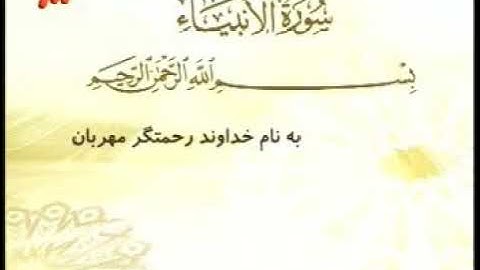 سُورَةُ الْأَنْبِيَاءِ
بِسْمِ اللَّهِ الرَّحْمَٰنِ الرَّحِيمِ
به نام خداوند رحمتگر مهربان